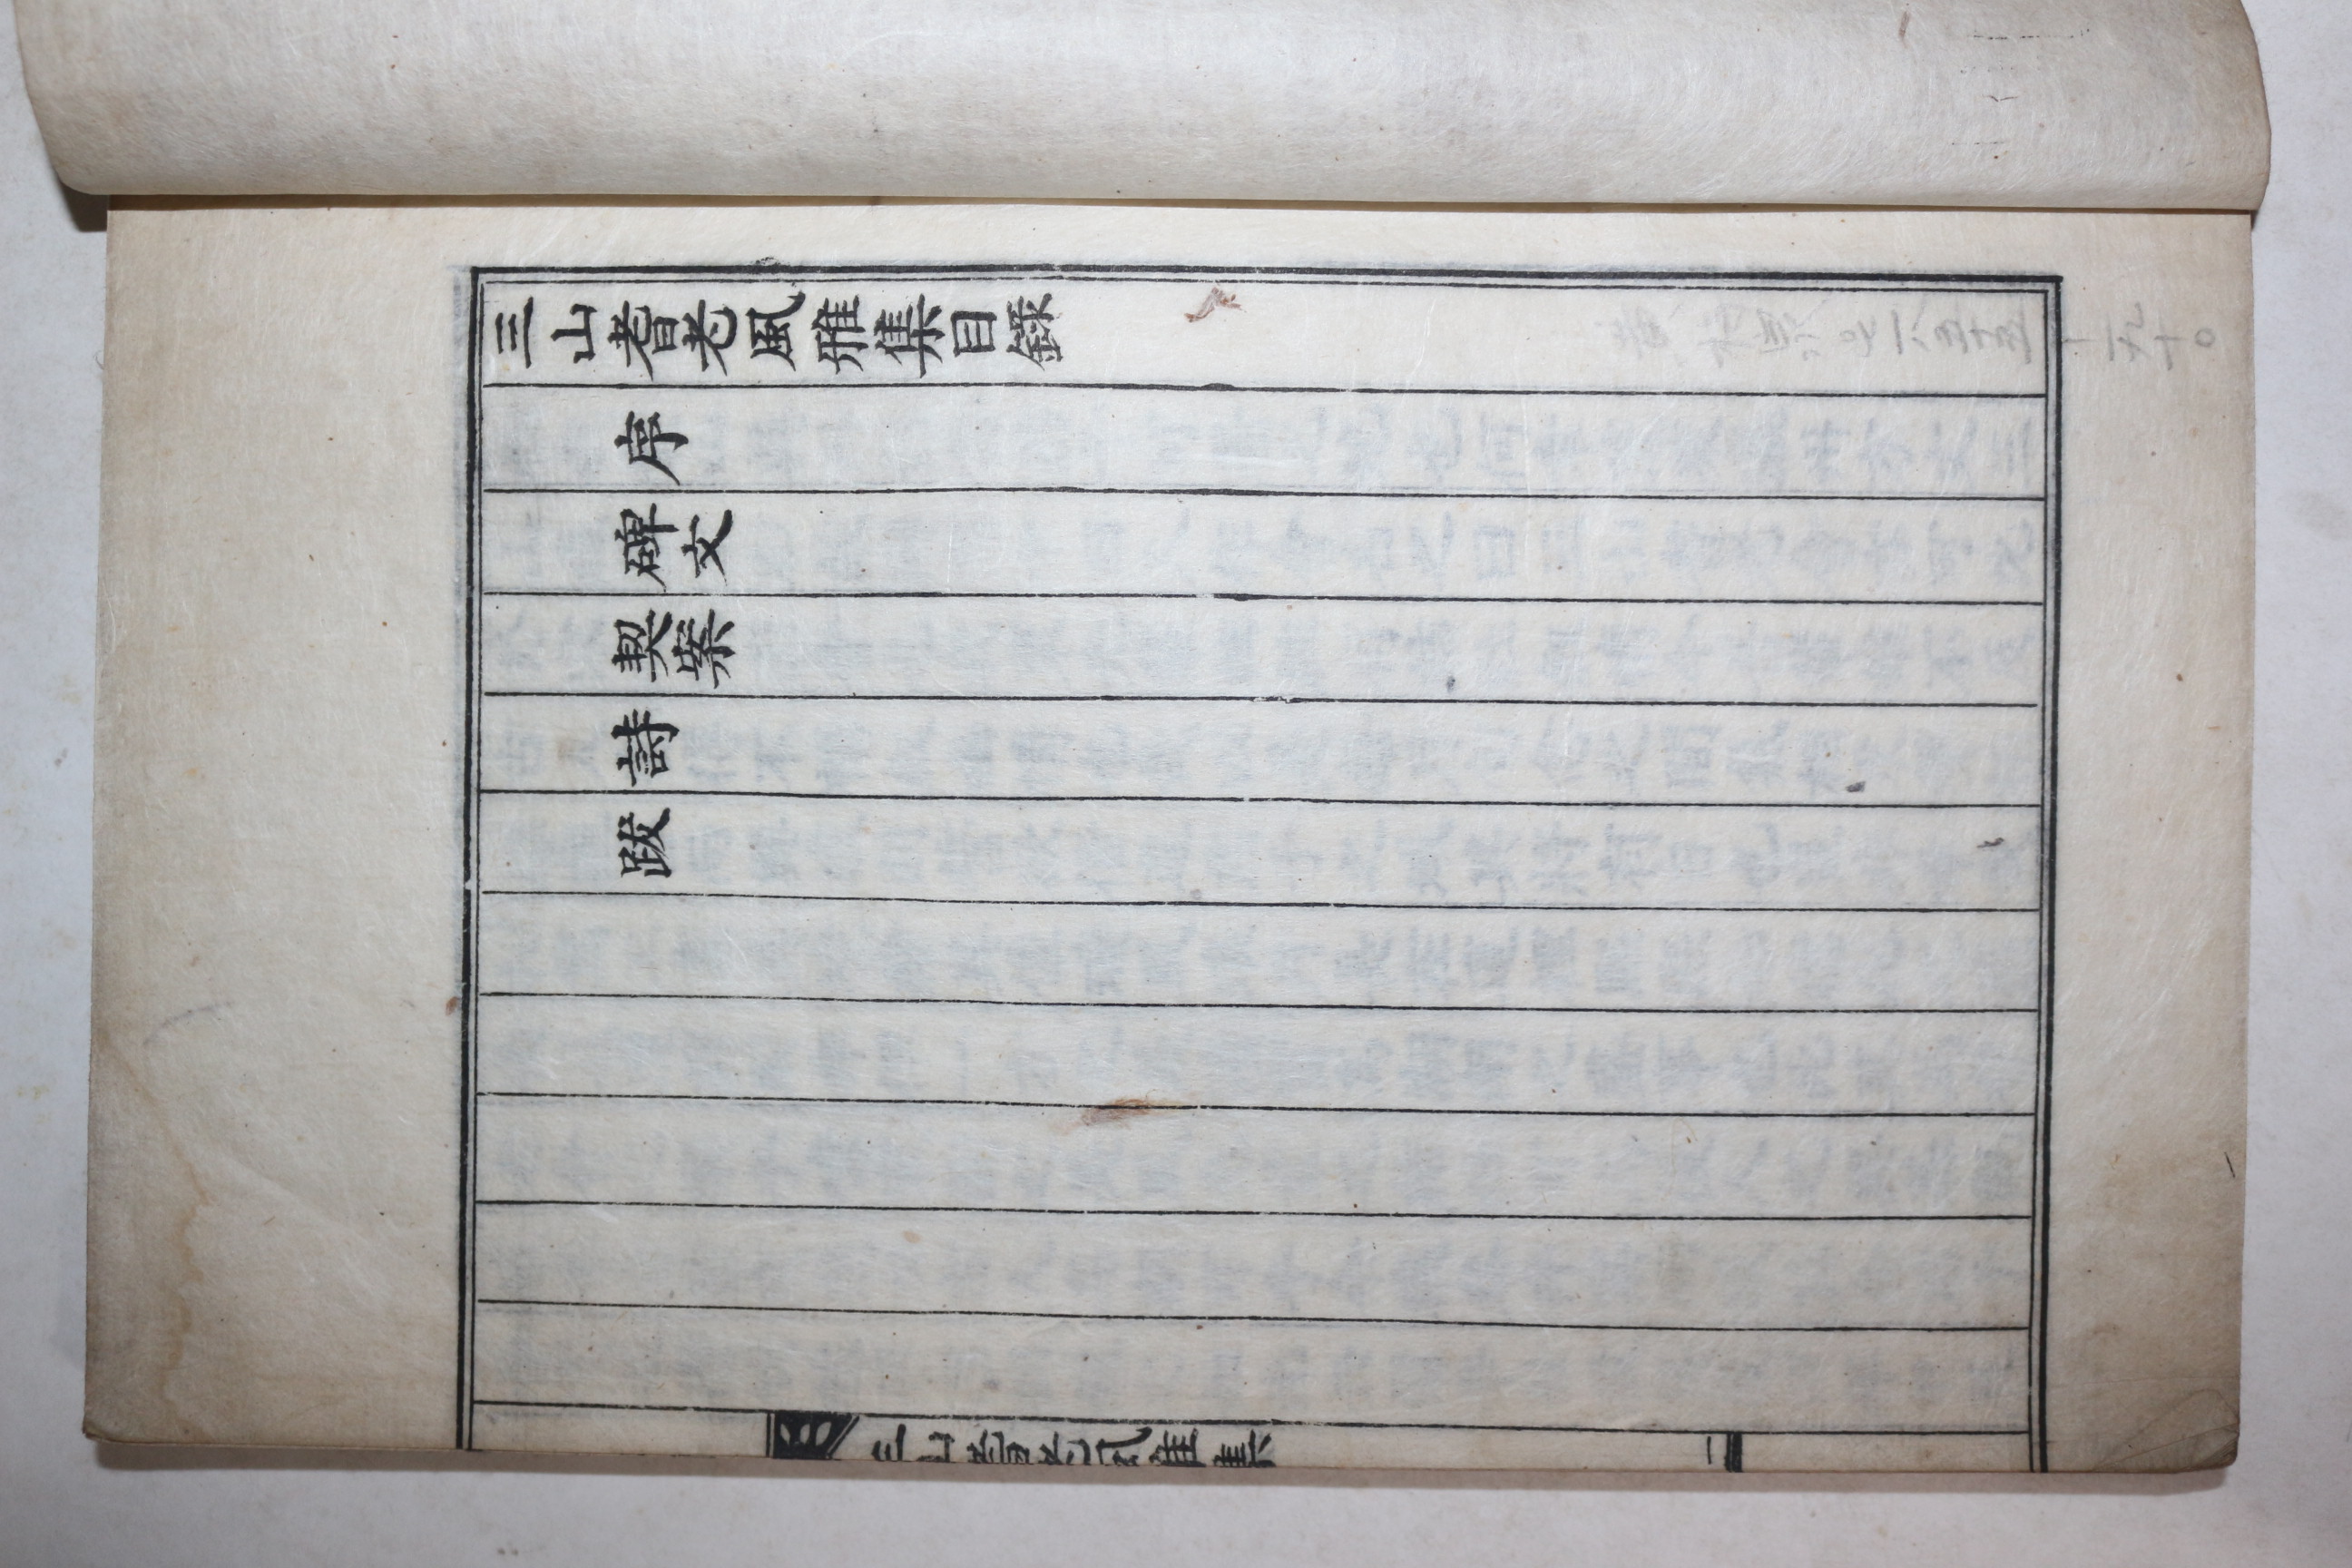 三山耆老風雅集目錄
序
碑文
契案
詩
跋
三山耆老風雅集